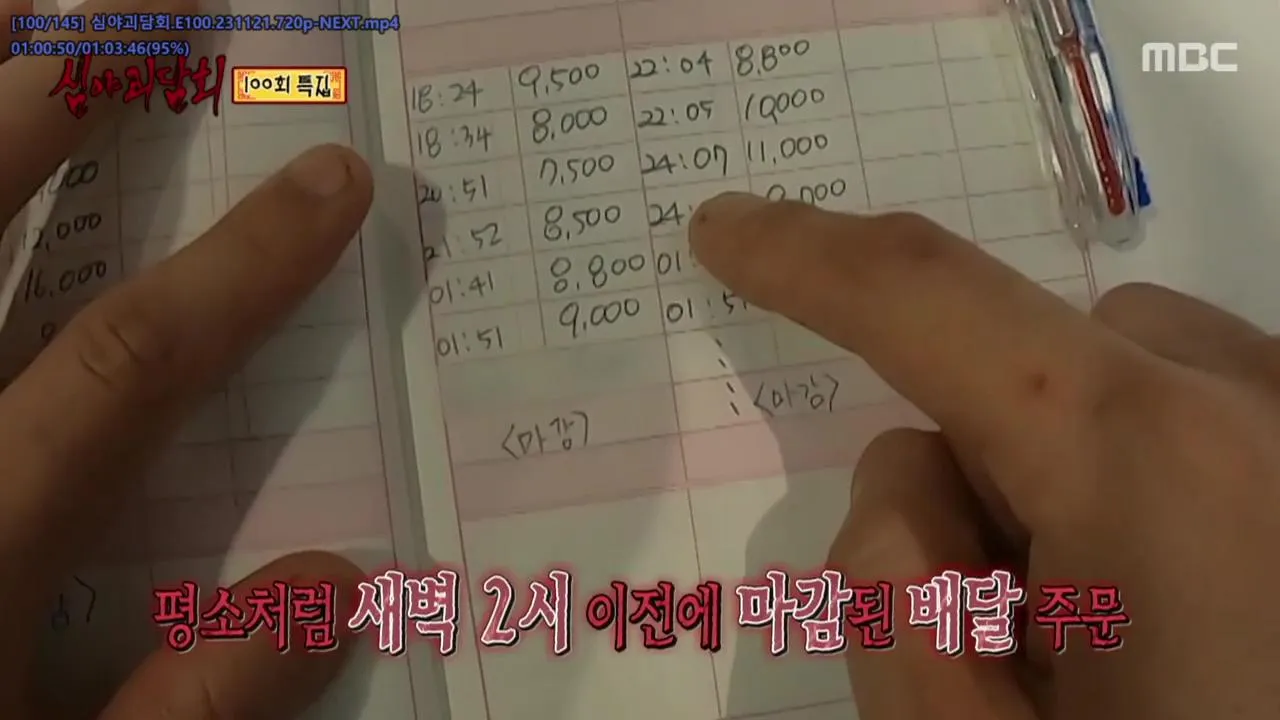 [100/145] 심야괴담회.E100.231121.720p-NEXT.mp4
01:00:50/01:03:46(95%)
심야괴담회 100회 특집
MBC
18:24 9,500 22:04 8,800
18:34 8,000 22:05 10,000
20:51 7,500 24:07 11,000
21:52 8,500 24:
01:41 8,800 01:
01:51 9,000 01:51
<마감> <마감>
12,000
16,000
평소처럼 새벽 2시 이전에 마감된 배달 주문